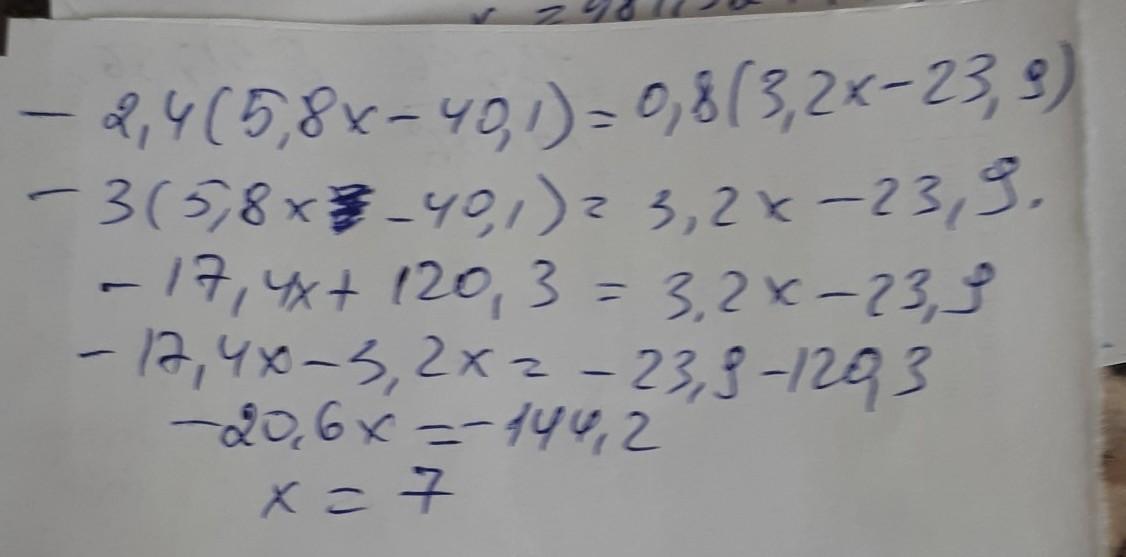 - 2,4(5,8x-40,1)=0,8(3,2x-23,9)
- 3(5,8x -40,1)= 3,2x-23,9.
- 17,4x+ 120,3 = 3,2x-23,9
- 17,4x-3,2x= -23,9-120,3
-20,6x=-144,2
x = 7